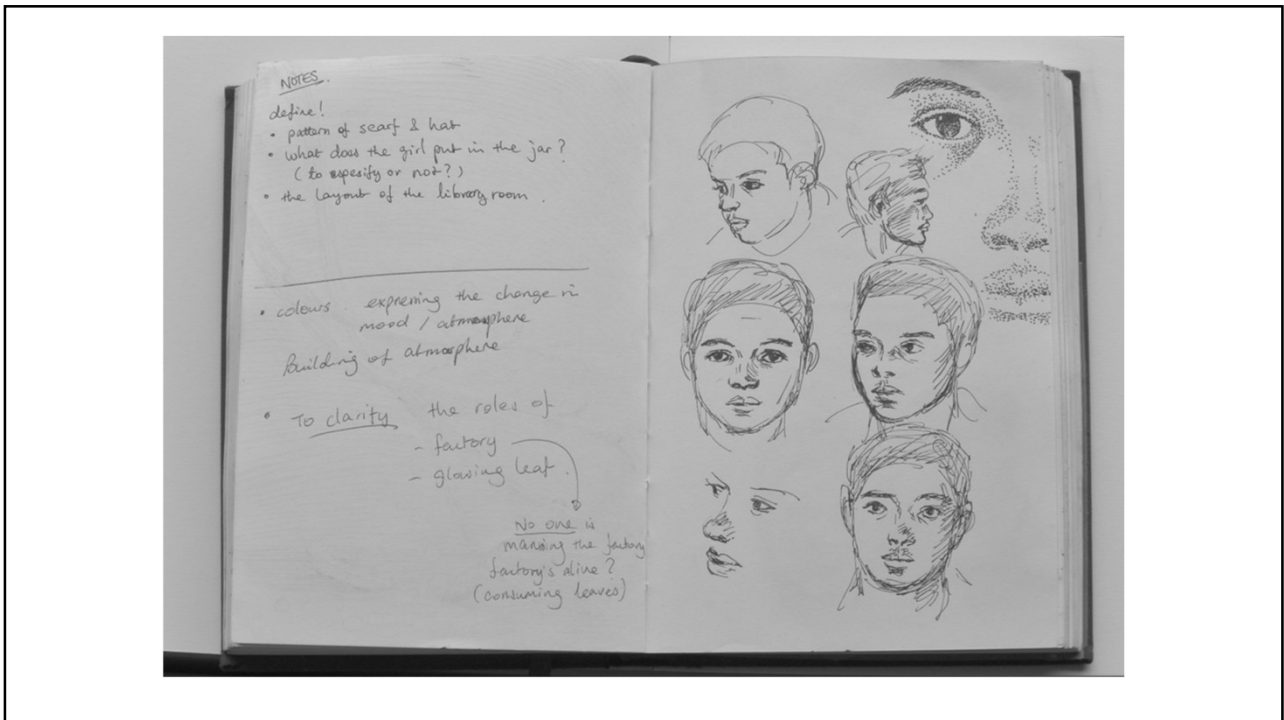 NOTES.
define!
• pattern of scarf & hat
• what does the girl put in the jar?
(to espesify or not?)
• the layout of the library room.
• colours expressing the change in
mood / atmosphere
Building of atmosphere
• To clarify the roles of
- factory
- glowing leaf.
No one is
manning the factory
factory's alive?
(consuming leaves)